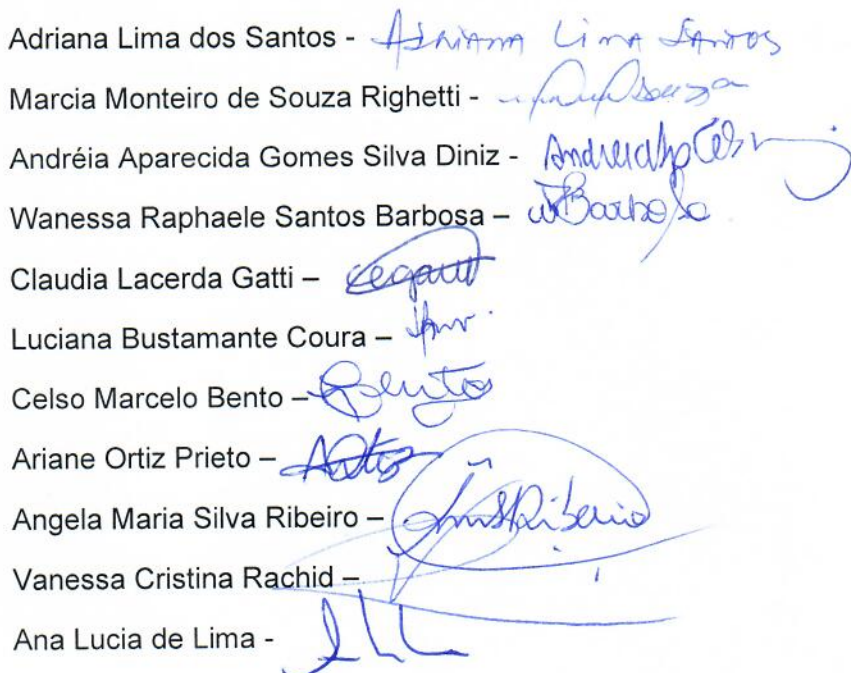 Adriana Lima dos Santos - Adriana Lima Santos
Marcia Monteiro de Souza Righetti -
Andréia Aparecida Gomes Silva Diniz -
Wanessa Raphaele Santos Barbosa – WBarbosa
Claudia Lacerda Gatti –
Luciana Bustamante Coura –
Celso Marcelo Bento – Bento
Ariane Ortiz Prieto –
Angela Maria Silva Ribeiro –
Vanessa Cristina Rachid –
Ana Lucia de Lima -